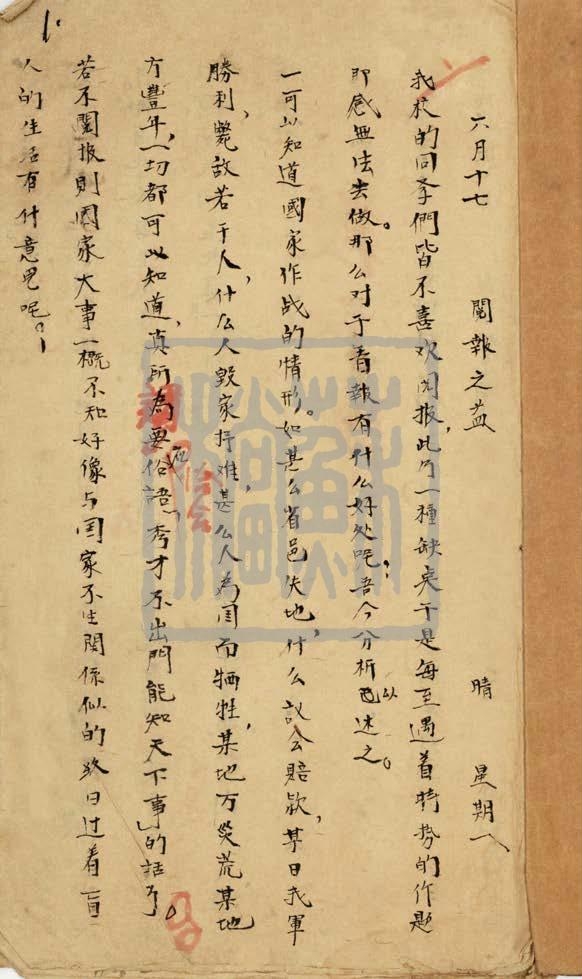 六月十七　閱報之益　晴　星期八
我校的同学們皆不喜欢閱报，此乃一種缺点于是每至遇着時势的作题
即感無法去做。那么对于看報有什么好处呢？吾今分析以述之。
一可以知道國家作战的情形。如甚么省邑失地，什么议会賠款，某日我軍
勝利，斃敌若干人，什么人毁家抒难，甚么人為国而牺牲，某地方災荒某地
方豐年，一切都可以知道，真所為要俗語「秀才不出門能知天下事」的話了。
若不閱报則國家大事一概不知好像与国家不生関係似的终日过着盲
人的生活有什意思呢。
1.